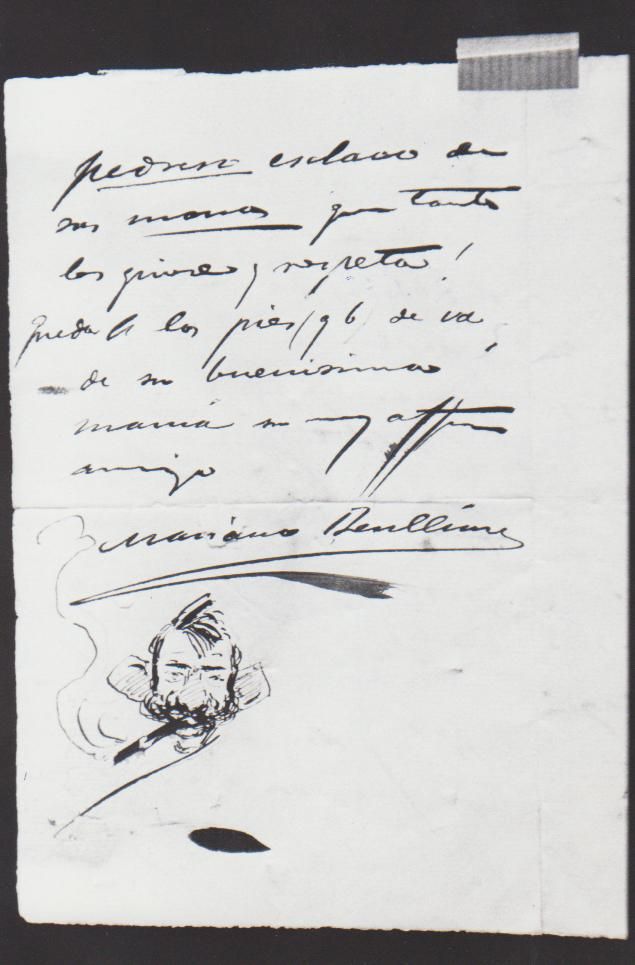 esclavo de
sus manos que tanto
los quiere y respeta!
Queda A los pies (q b) de vd
de su buenisima
mamá su muy affmo
amigo
Mariano Benlliure